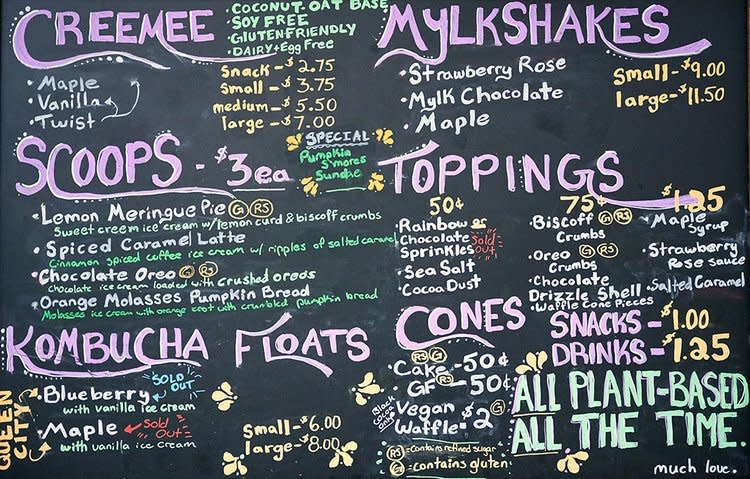 CREEMEE
• COCONUT-OAT BASE
• SOY FREE
• GLUTEN-FRIENDLY
• DAIRY + Egg Free
• Maple
• Vanilla
• Twist
Snack - $2.75
Small - $3.75
medium - $5.50
large - $7.00
MYLKSHAKES
• Strawberry Rose
• Mylk Chocolate
• Maple
Small - $9.00
large - $11.50
SCOOPS - $3ea
SPECIAL
Pumpkin
S'mores
Sundae
• Lemon Meringue Pie G RS
Sweet creem ice cream w/ lemon curd & biscoff crumbs
• Spiced Caramel Latte
Cinnamon spiced coffee ice cream w/ ripples of salted caramel
• Chocolate Oreo G RS
Chocolate ice cream loaded with crushed oreos
• Orange Molasses Pumpkin Bread
Molasses ice cream with orange zest with crumbled pumpkin bread
TOPPINGS
50¢
• Rainbow or
Chocolate
Sprinkles Sold Out
• Sea Salt
• Cocoa Dust
75¢
• Biscoff G RS
Crumbs
• Oreo G RS
Crumbs
• Chocolate
Drizzle Shell
• Waffle Cone Pieces
$1.25
• Maple
Syrup
• Strawberry
Rose sauce
• Salted Caramel
KOMBUCHA FLOATS
QUEEN CITY
• Blueberry SOLD OUT
with vanilla ice cream
• Maple Sold Out
with vanilla ice cream
Small - $6.00
large - $8.00
CONES
RS G
• Cake - 50¢
• GF RS - 50¢
Black cocoa onyx
• Vegan
Waffle - $2 G
RS = Contains refined sugar
G = contains gluten
SNACKS - $1.00
DRINKS - $1.25
ALL PLANT-BASED
ALL THE TIME.
much love.